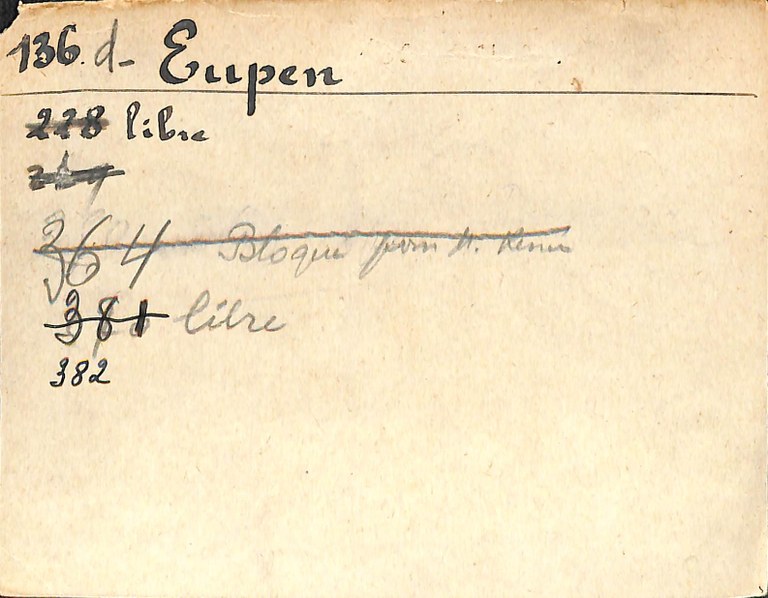 136 d- Eupen
228 libre
364 Bloqué pour M.
381 libre
382